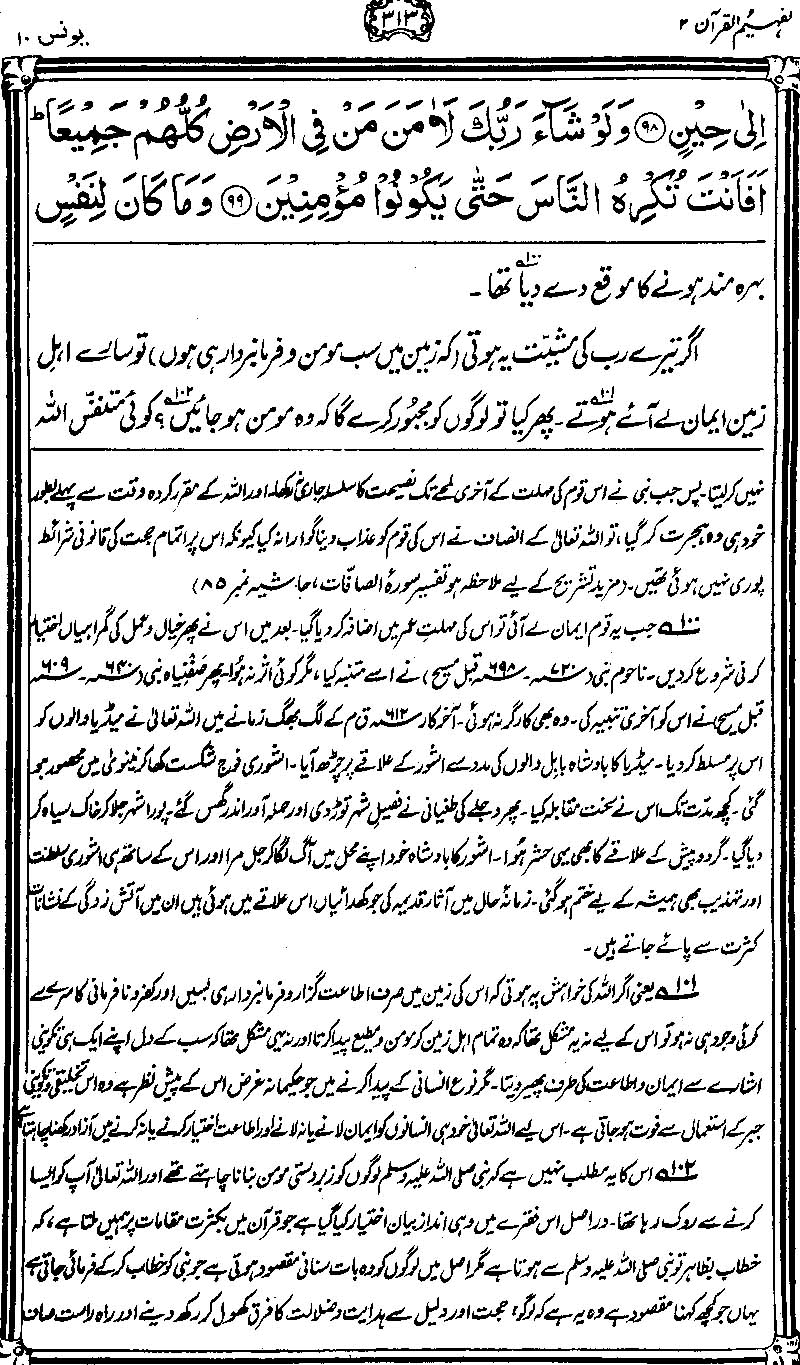 تفہیم القرآن ۲
۳۱۳
یونس ۱۰
اِلٰى حِيْنٍ ﴿۹۸﴾ وَلَوْ شَآءَ رَبُّكَ لَاٰمَنَ مَنْ فِى الْاَرْضِ كُلُّهُمْ جَمِيْعًا ؕ
اَفَاَنْتَ تُكْرِهُ النَّاسَ حَتّٰى يَكُوْنُوْا مُؤْمِنِيْنَ ﴿۹۹﴾ وَمَا كَانَ لِنَفْسٍ
بہرہ مند ہونے کا موقع دے دیا ۱۰۰ تھا۔
اگر تیرے رب کی مشیّت یہ ہوتی (کہ زمین میں سب مومن و فرمانبردار ہی ہوں) تو سارے اہلِ
زمین ایمان لے آئے ۱۰۱ ہوتے۔ پھر کیا تو لوگوں کو مجبور کرے گا کہ وہ مومن ہو جائیں ۱۰۲؟ کوئی متنفّس اللہ
نہیں کر لیتا۔ پس جب نبی نے اس قوم کی مہلت کے آخری لمحے تک نصیحت کا سلسلہ جاری نہ رکھا، اور اللہ کے مقرر کردہ وقت سے پہلے بطور
خود ہی وہ ہجرت کر گیا، تو اللہ تعالیٰ کے انصاف نے اس کی قوم کو عذاب دینا گوارا نہ کیا کیونکہ اس پر اتمامِ حجت کی قانونی شرائط
پوری نہیں ہوئی تھیں۔ (مزید تشریح کے لیے ملاحظہ ہو تفسیر سورۂ الصافّات، حاشیہ نمبر ۸۵)
۱۰۰ جب یہ قوم ایمان لے آئی تو اس کی مہلتِ عمر میں اضافہ کر دیا گیا۔ بعد میں اس نے پھر خیال و عمل کی گمراہیاں اختیار
کرنی شروع کر دیں۔ ناحوم نبی (۷۲۰ء۔ ۶۹۸ء قبل مسیح) نے اسے متنبہ کیا، مگر کوئی اثر نہ ہوا۔ پھر صَفْنِیاہ نبی (۶۴۰ء۔ ۶۰۹ء
قبل مسیح) نے اس کو آخری تنبیہ کی۔ وہ بھی کارگر نہ ہوئی۔ آخر کار ۶۱۲ء ق م کے لگ بھگ زمانے میں اللہ تعالیٰ نے میڈیا والوں کو
اس پر مسلط کر دیا۔ میڈیا کا بادشاہ بابل والوں کی مدد سے اشور کے علاقے پر چڑھ آیا۔ اشوری فوج شکست کھا کر نینویٰ میں محصور ہو
گئی۔ کچھ مدت تک اس نے سخت مقابلہ کیا۔ پھر دجلے کی طغیانی نے فصیلِ شہر توڑ دی اور حملہ آور اندر گھس گئے۔ پورا شہر جلا کر خاک سیاہ کر
دیا گیا۔ گرد و پیش کے علاقے کا بھی یہی حشر ہُوا۔ اشور کا بادشاہ خود اپنے محل میں آگ لگا کر جل مرا اور اس کے ساتھ ہی اشوری سلطنت
اور تہذیب بھی ہمیشہ کے لیے ختم ہو گئی۔ زمانۂ حال میں آثارِ قدیمہ کی جو کھدائیاں اس علاقے میں ہوئی ہیں ان میں آتش زدگی کے نشانات
کثرت سے پائے جاتے ہیں۔
۱۰۱ یعنی اگر اللہ کی خواہش یہ ہوتی کہ اس کی زمین میں صرف اطاعت گزار و فرمانبردار ہی بسیں اور کفر و نافرمانی کا سرے سے
کوئی وجود ہی نہ ہو تو اس کے لیے نہ یہ مشکل تھا کہ وہ تمام اہلِ زمین کو مومن و مطیع پیدا کرتا اور نہ یہی مشکل تھا کہ سب کے دل اپنے ایک ہی تکوینی
اشارے سے ایمان و اطاعت کی طرف پھیر دیتا۔ مگر نوعِ انسانی کے پیدا کرنے میں جو حکیمانہ غرض اس کے پیشِ نظر ہے وہ اس تخلیقی و تکوینی
جبر کے استعمال سے فوت ہو جاتی ہے۔ اس لیے اللہ تعالیٰ خود ہی انسانوں کو ایمان لانے یا نہ لانے اور اطاعت اختیار کرنے یا نہ کرنے میں آزاد رکھنا چاہتا ہے۔
۱۰۲ اس کا یہ مطلب نہیں ہے کہ نبی صلی اللہ علیہ وسلم لوگوں کو زبردستی مومن بنانا چاہتے تھے اور اللہ تعالیٰ آپ کو ایسا
کرنے سے روک رہا تھا۔ دراصل اس فقرے میں وہی اندازِ بیان اختیار کیا گیا ہے جو قرآن میں بکثرت مقامات پر ہمیں ملتا ہے، کہ
خطاب بظاہر تو نبی صلی اللہ علیہ وسلم سے ہوتا ہے مگر اصل میں لوگوں کو وہ بات سنانی مقصود ہوتی ہے جو نبی کو خطاب کر کے فرمائی جاتی ہے
یہاں جو کچھ کہنا مقصود ہے وہ یہ ہے کہ لوگو، حجت اور دلیل سے ہدایت و ضلالت کا فرق کھول کر رکھ دینے اور راہِ راست صاف